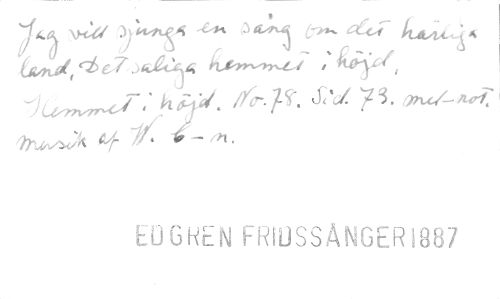 Jag vill sjunga en sång om det härliga
land, Det saliga hemmet i höjd,
Hemmet i höjd. No. 78. Sid. 73. mel-not.
musik af W. b-n.
EDGREN FRIDSSÅNGER 1887